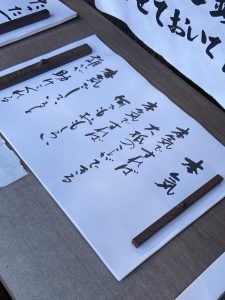 本気
本気ですれば
大抵のことができる
本気ですれば
何でもおもしろい
本気でしていると
誰かが助けてくれる
ておいて